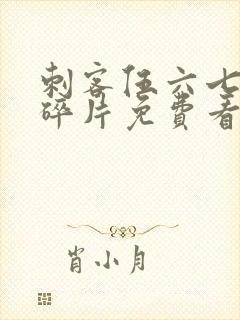 刺客伍六七
碎片免费看
肖小月